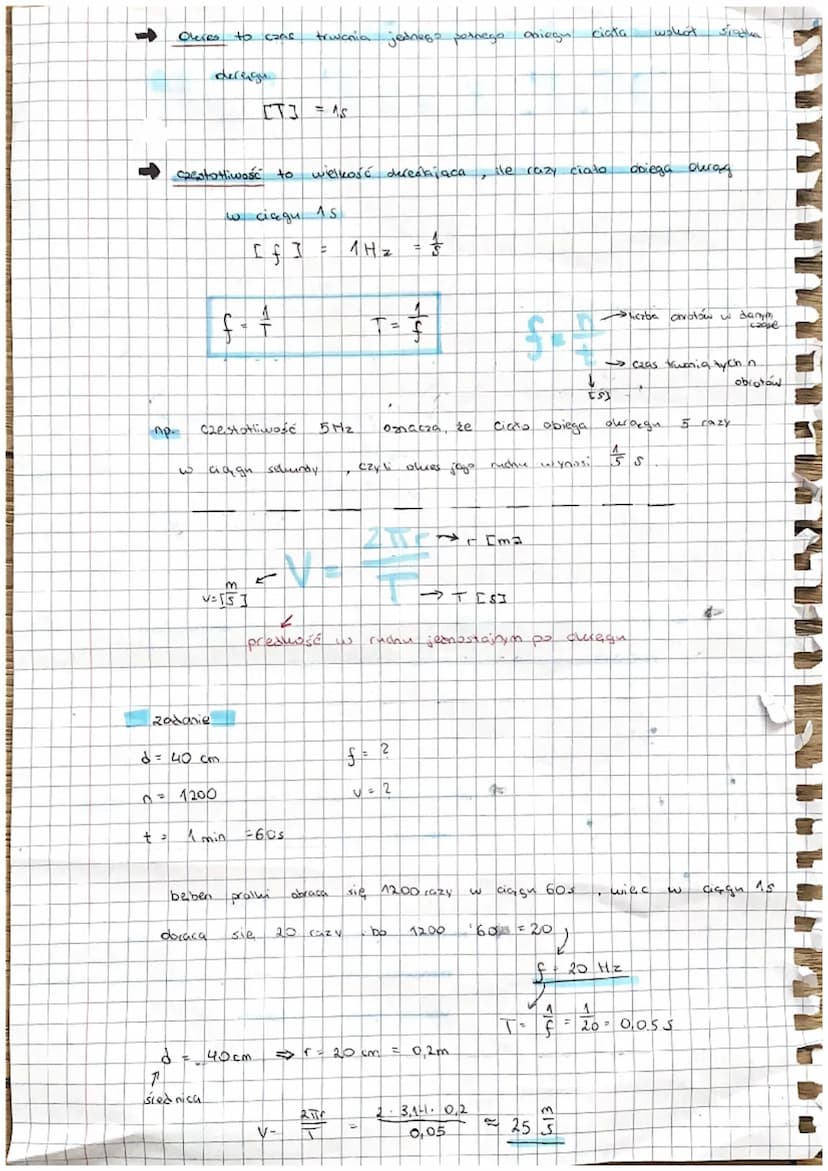 → Okres to czas trwania jednego pełnego obiegu ciała wokół środka
okręgu
[T] = 1s
→ Częstotliwość to wielkość określająca, ile razy ciało obiega okrąg
w ciągu 1s
[f] = 1Hz = 1/s
f = 1/T T = 1/f
f = n/t → liczba obrotów w danym czasie
→ czas trwania tych n obrotów
↓ [s]
np. częstotliwość 5Hz oznacza, że ciało obiega okręgu 5 razy
w ciągu sekundy, czyli okres jego ruchu wynosi 1/5 s.
V = 2πr/T → r [m]
v=[m/s] → T [s]
prędkość w ruchu jednostajnym po okręgu
zadanie
d = 40 cm f = ?
n = 1200 v = ?
t = 1 min = 60s
bęben pralki obraca się 1200 razy w ciągu 60s, więc w ciągu 1s
obraca się 20 razy, bo 1200 : 60 = 20
f = 20 Hz
T = 1/f = 1/20 = 0,05 s
d = 40cm ⇒ r = 20 cm = 0,2m
↑
średnica
V = 2πr/T = 2 · 3,14 · 0,2/0,05 ≈ 25 m/s